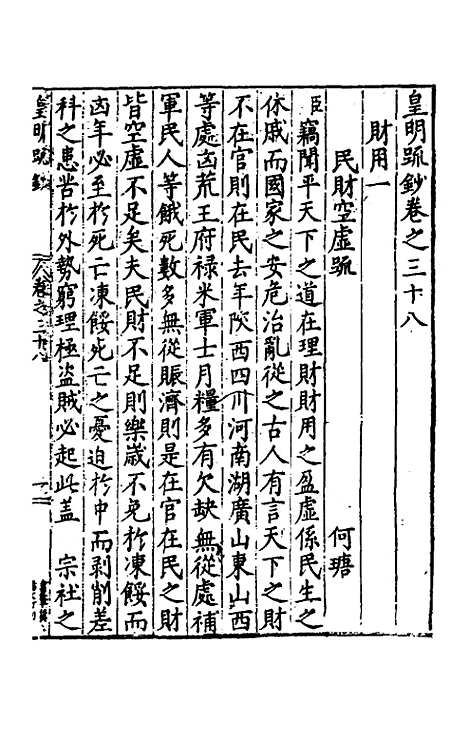 皇明疏鈔卷之三十八
財用一
民財空虛疏 何瑭
臣竊聞平天下之道在理財財用之盈虛係民生之
休戚而國家之安危治亂從之古人有言天下之財
不在官則在民去年陝西四川河南湖廣山東山西
等處凶荒王府祿米軍士月糧多有欠缺無從處補
軍民人等餓死數多無從賑濟則是在官在民之財
皆空虛不足矣夫民財不足則樂歲不免於凍餒而
凶年必至於死亡凍餒死亡之憂迫於中而剥削差
科之患苦於外勢窮理極盜賊必起此蓋 宗社之
皇明疏鈔 卷之三十八 一